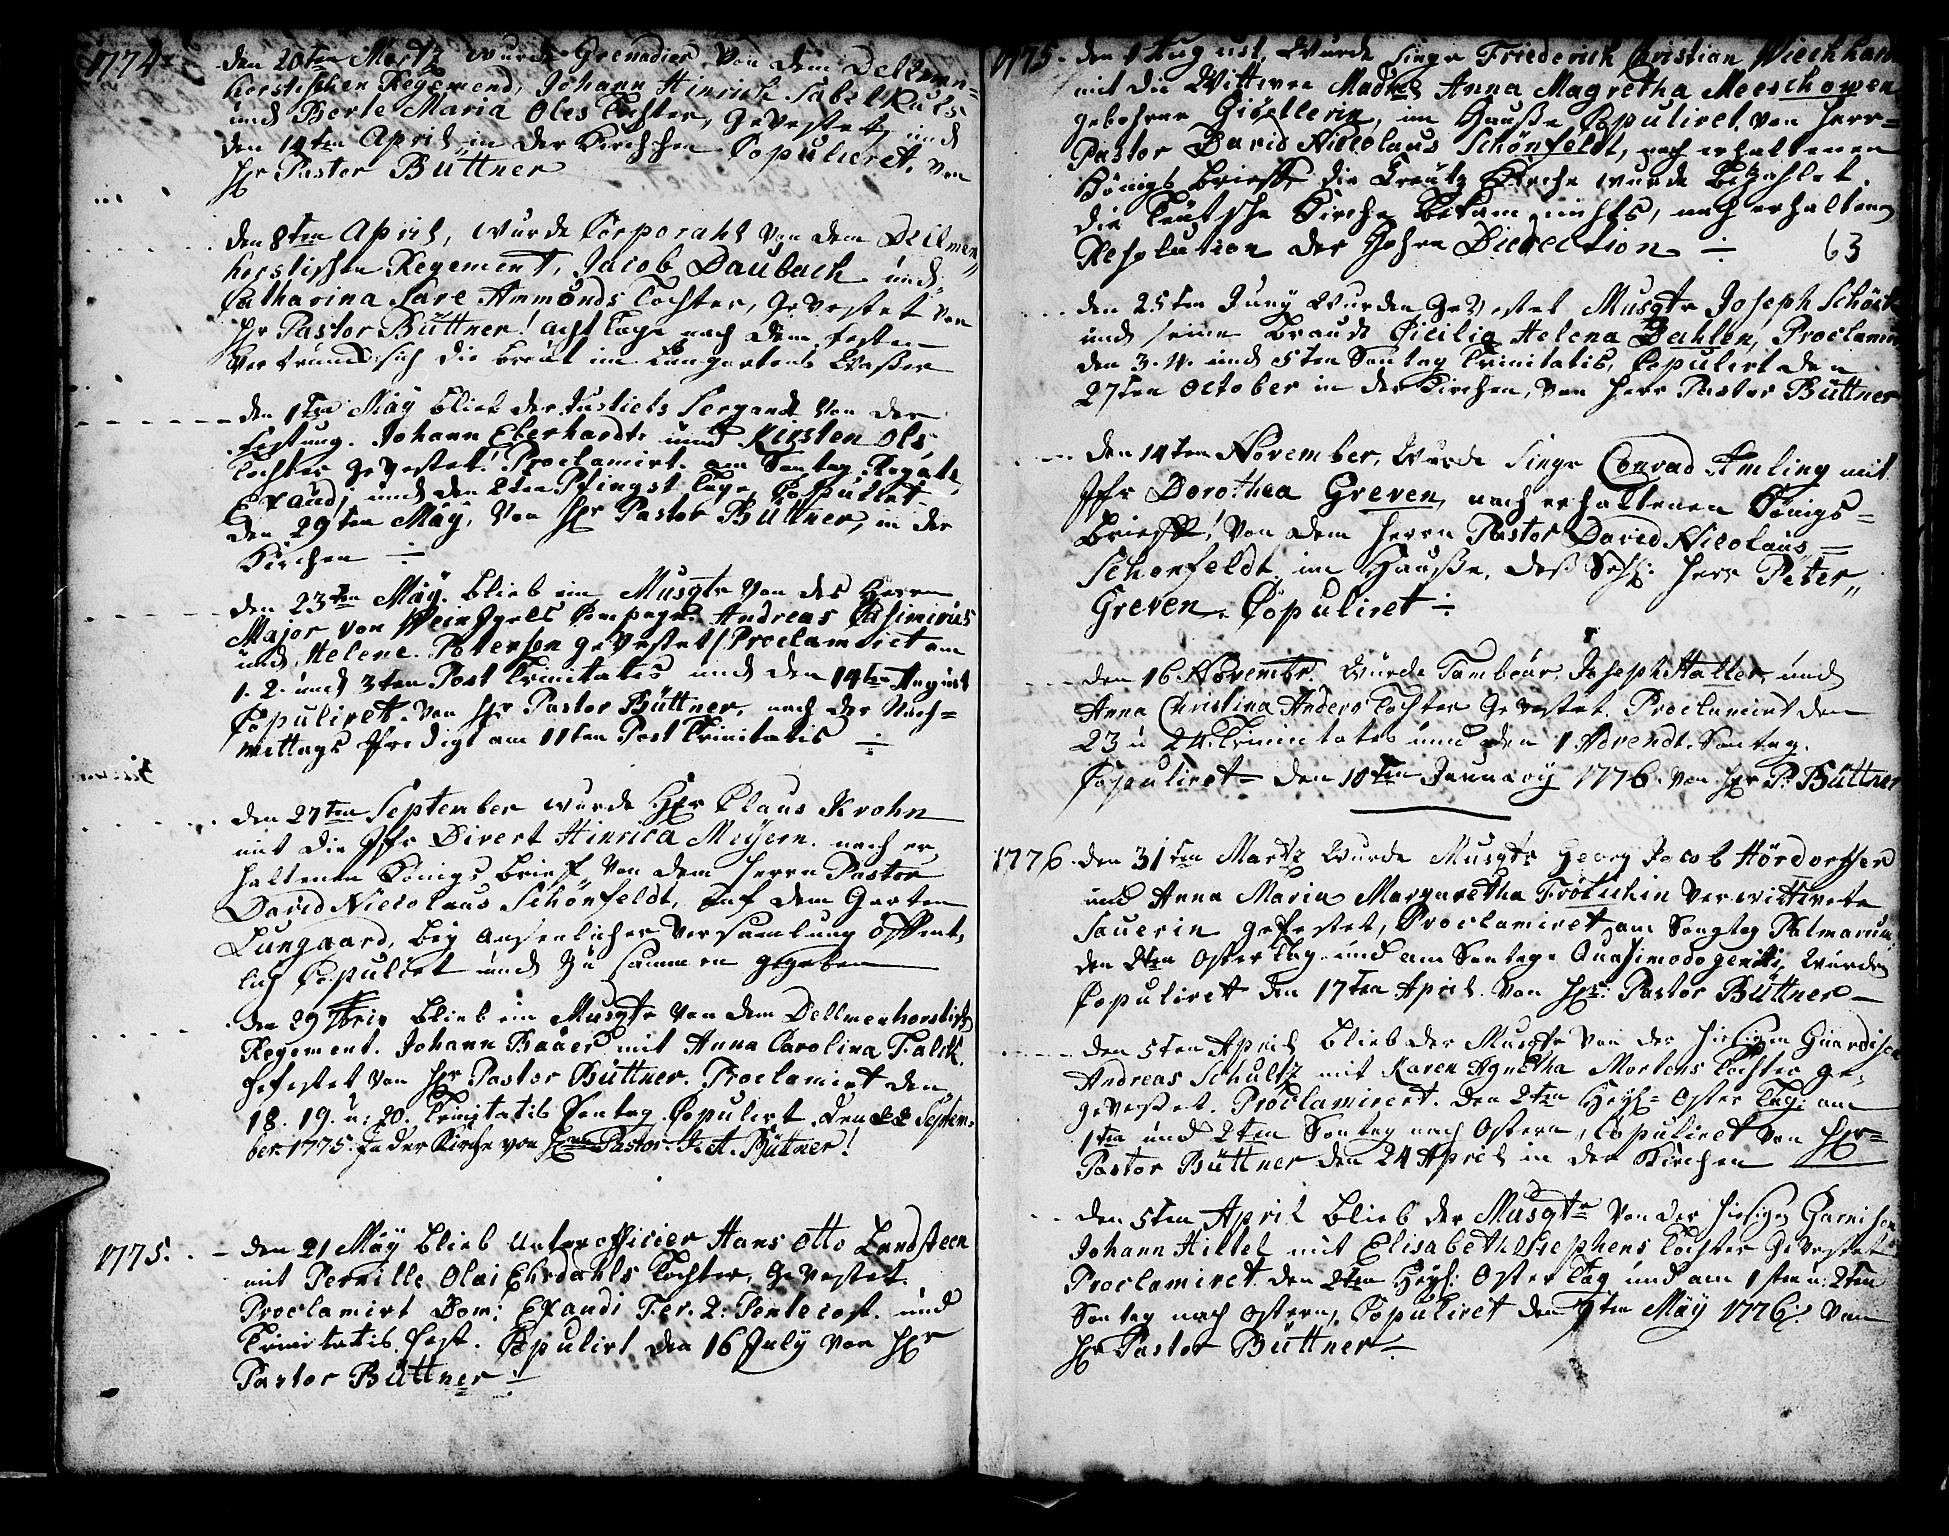 1774. den 20ten Martz wurde Grenadier Von dem Dellmen=
horstischen Regemend, Johann Hinrich Sabelkuls
und Berte Maria Oles Tochter, geVestet, und
den 14ten April, in der Kirchen Copulieret, von
Hr Pastor Büttner
den 8ten April, wurde Corporahl Von dem Dellmen,,
horstischen Regement, Jacob Daubach und
Catharina Lare Ammonds Tochter, geVestet von
Hr Pastor Büttner! acht Tage nach dem festen
Vertrunck sich die Braut im Lungartens Waßer
den 1ten May blieb der Justiets Sergandt Von der
Festung. Johann Eberhardt und Kirsten Ols
Tochter geVestet! Proclamirt am Sontag Rogate,
Exaudi und den 2ten Pfingst Tage, Copuliet
den 29ten May, Von Hr Pastor Büttner, in der
Kirchen ÷
den 23ten May. blieb ein Musqtr von des Herrn
Major von Compagn. Andreas Casimirus
und Helene Petersen geVestet / Proclamiret am
1. 2. und 3ten Post Trinitatis und den 14ten August
Copuliret. Von Hr Pastor Büttner, nach der Nach=
mittags Predigt am 11ten Post Trinitatis ÷
den 27ten September wurde Hr Claus Krohn
mit die Jfr Divert Hinrica Meyern. nach er,
haltenen Königs brieff von dem Herrn Pastor
David Niccolaus Schönfeldt, auf dem Garten
Lungaard, bey ansenlicher Versamlung öffent,
lich Copuliet und zu sammen gegeben
den 29 7bris blieb ein Musqtr von dem Dellmenhorstisch
Regement. Johann Baüer mit Anna Carolina Falck.
gefestet von Hr Pastor Büttner. Proclamirt den
18. 19. u: 20. Trinitatis Sontag Copulirt. den 22 Septem,
ber. 1775. In der Kirche von Hrn Pastor. F. A. Bütner!
1775. - den 21 May blieb Unterofficier Hans Otto Landsteen
mit Pernille Olai Ehrdahls Tochter, geVestet.
Proclamirt Dom: Exaudi Fer. 2. Pentecost. und
Trinitatis fest. Copulirt den 16 July von Hr
Pastor Büttner ÷
1775. den 1 August, wurde Singr Friederich Christian
mit die Wittwee Madme Anna Magretha Meeschowen
gebohrne Gisellerin, im Hauße Copuliret, von Herr=
Pastor David Niccolaus Schönfeldt, nach erhaltenen
Königs brieff die Creutz Kirche wurde bezahlet.
die Teutsche Kirche bekam nichts, nach erhaltene
Resolution der Direction ÷ 63
den 25ten Juny wurden geVestet Musqtr Joseph
und seine Braudt Cicilia Helena Dahlen, Proclamir
den 3. 4. und 5ten Sontag Trinitatis, Copulirt den
27ten October in der Kirchen, von Herr Pastor Büttner
den 14ten November, wurde Singr Conrad Amling mit
Jfr Dorothea Greven, nach erhaltenen Königs=
brieff! Von dem Herrn Pastor David Nicolaus,,=
Schönfeldt im Hauße, deß Herr Peter,,
Greven. Copuliret ÷
den 16 Novembr. wurde Tambour Joseph Haller, und
Anna Christina Anders Tochter geVestet. Proclamirt den
23 u 24. Trinitatis und den 1 Advendt. Sontag.
Copuliret= den 10ten Januarÿ 1776. von Hr P. Büttner
1776. den 31ten Martz wurde Musqtr Georg Jacob Hördorffer
und Anna Maria Margaretha Frölichin Verwittwete
Sauerin gefestet, Proclamiret am Songtag Palmarum
den 2ten Oster Tag und am Sontage Quasimodogeniti, wurden
Copuliret den 17ten April. von Hr: Pastor Büttner—
den 5ten April blieb der Musqtr von der hiesigen
Andreas Schultz mit Karen Agnetha Mortens Tochter ge,
geVestet. Proclamireet. den 2ten Heyl= Oster Tag; am
1ten und 2ten Sontag nach Ostern, Copuliret von Hr=
Pastor Büttner den 24 April in der Kirchen
den 5ten April blieb der Musqtr von der hiesigen Garnison
Johann Hillel mit Elisabeth Stephens Tochter geVestet
Proclamiret den 2ten Heyl: Oster Tag und am 1sten u: 2ten
Sontag nach Ostern, Copuliret den 9ten May 1776. von
Hr Pastor Büttner